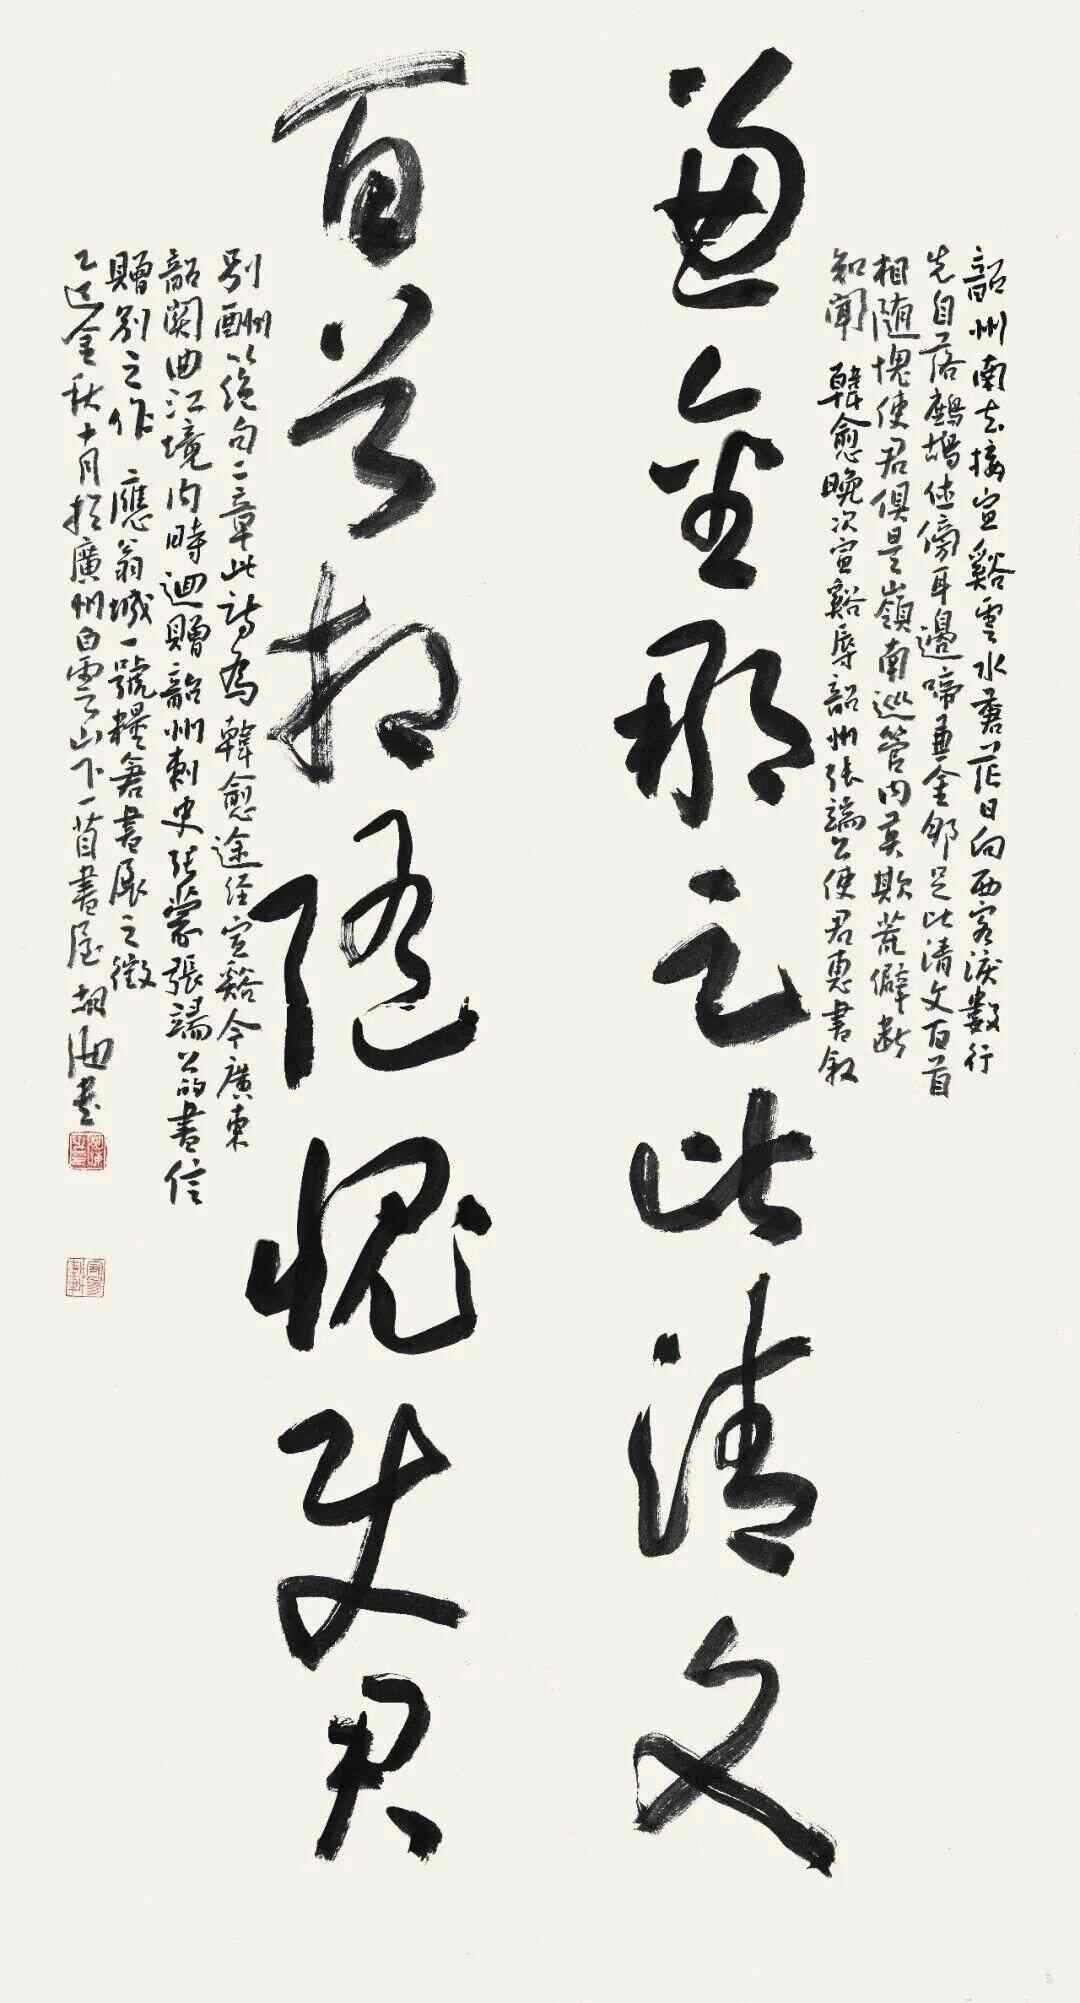 韶州南去接宣谿雲水蒼茫日向西客淚數行
先自落鷓鴣休傍耳邊啼兼金那足比清文百首
相隨愧使君俱是嶺南巡管內莫欺荒僻斷
知聞 韓愈晚次宣谿辱韶州張端公使君惠書敘
兼金那足比清文
百首相隨愧使君
別酬以絕句二章此詩為韓愈途經宣谿今廣東
韶關曲江境內時迴贈韶州刺史張蒙張端公的書信
贈別之作 應翁城一號糧倉書展之徵
乙巳金秋十月於廣州白雲山下一書屋胡書